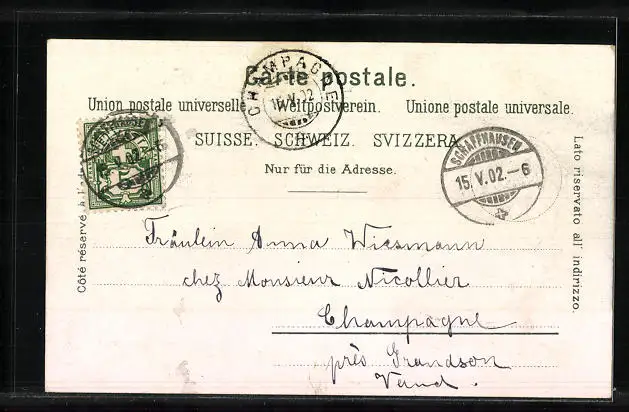 Carte postale.
Union postale universelle. Weltpostverein. Unione postale universale.
SUISSE. SCHWEIZ. SVIZZERA.
Nur für die Adresse.
CHAMPAGNE
15.V.02
SCHAFFHAUSEN
15.V.02.-6
Côté réservé à
Lato riservato all' indirizzo.
Fräulein Anna Wiesmann
chez Monsieur Nicollier
Champagne
près Grandson
Vaud.